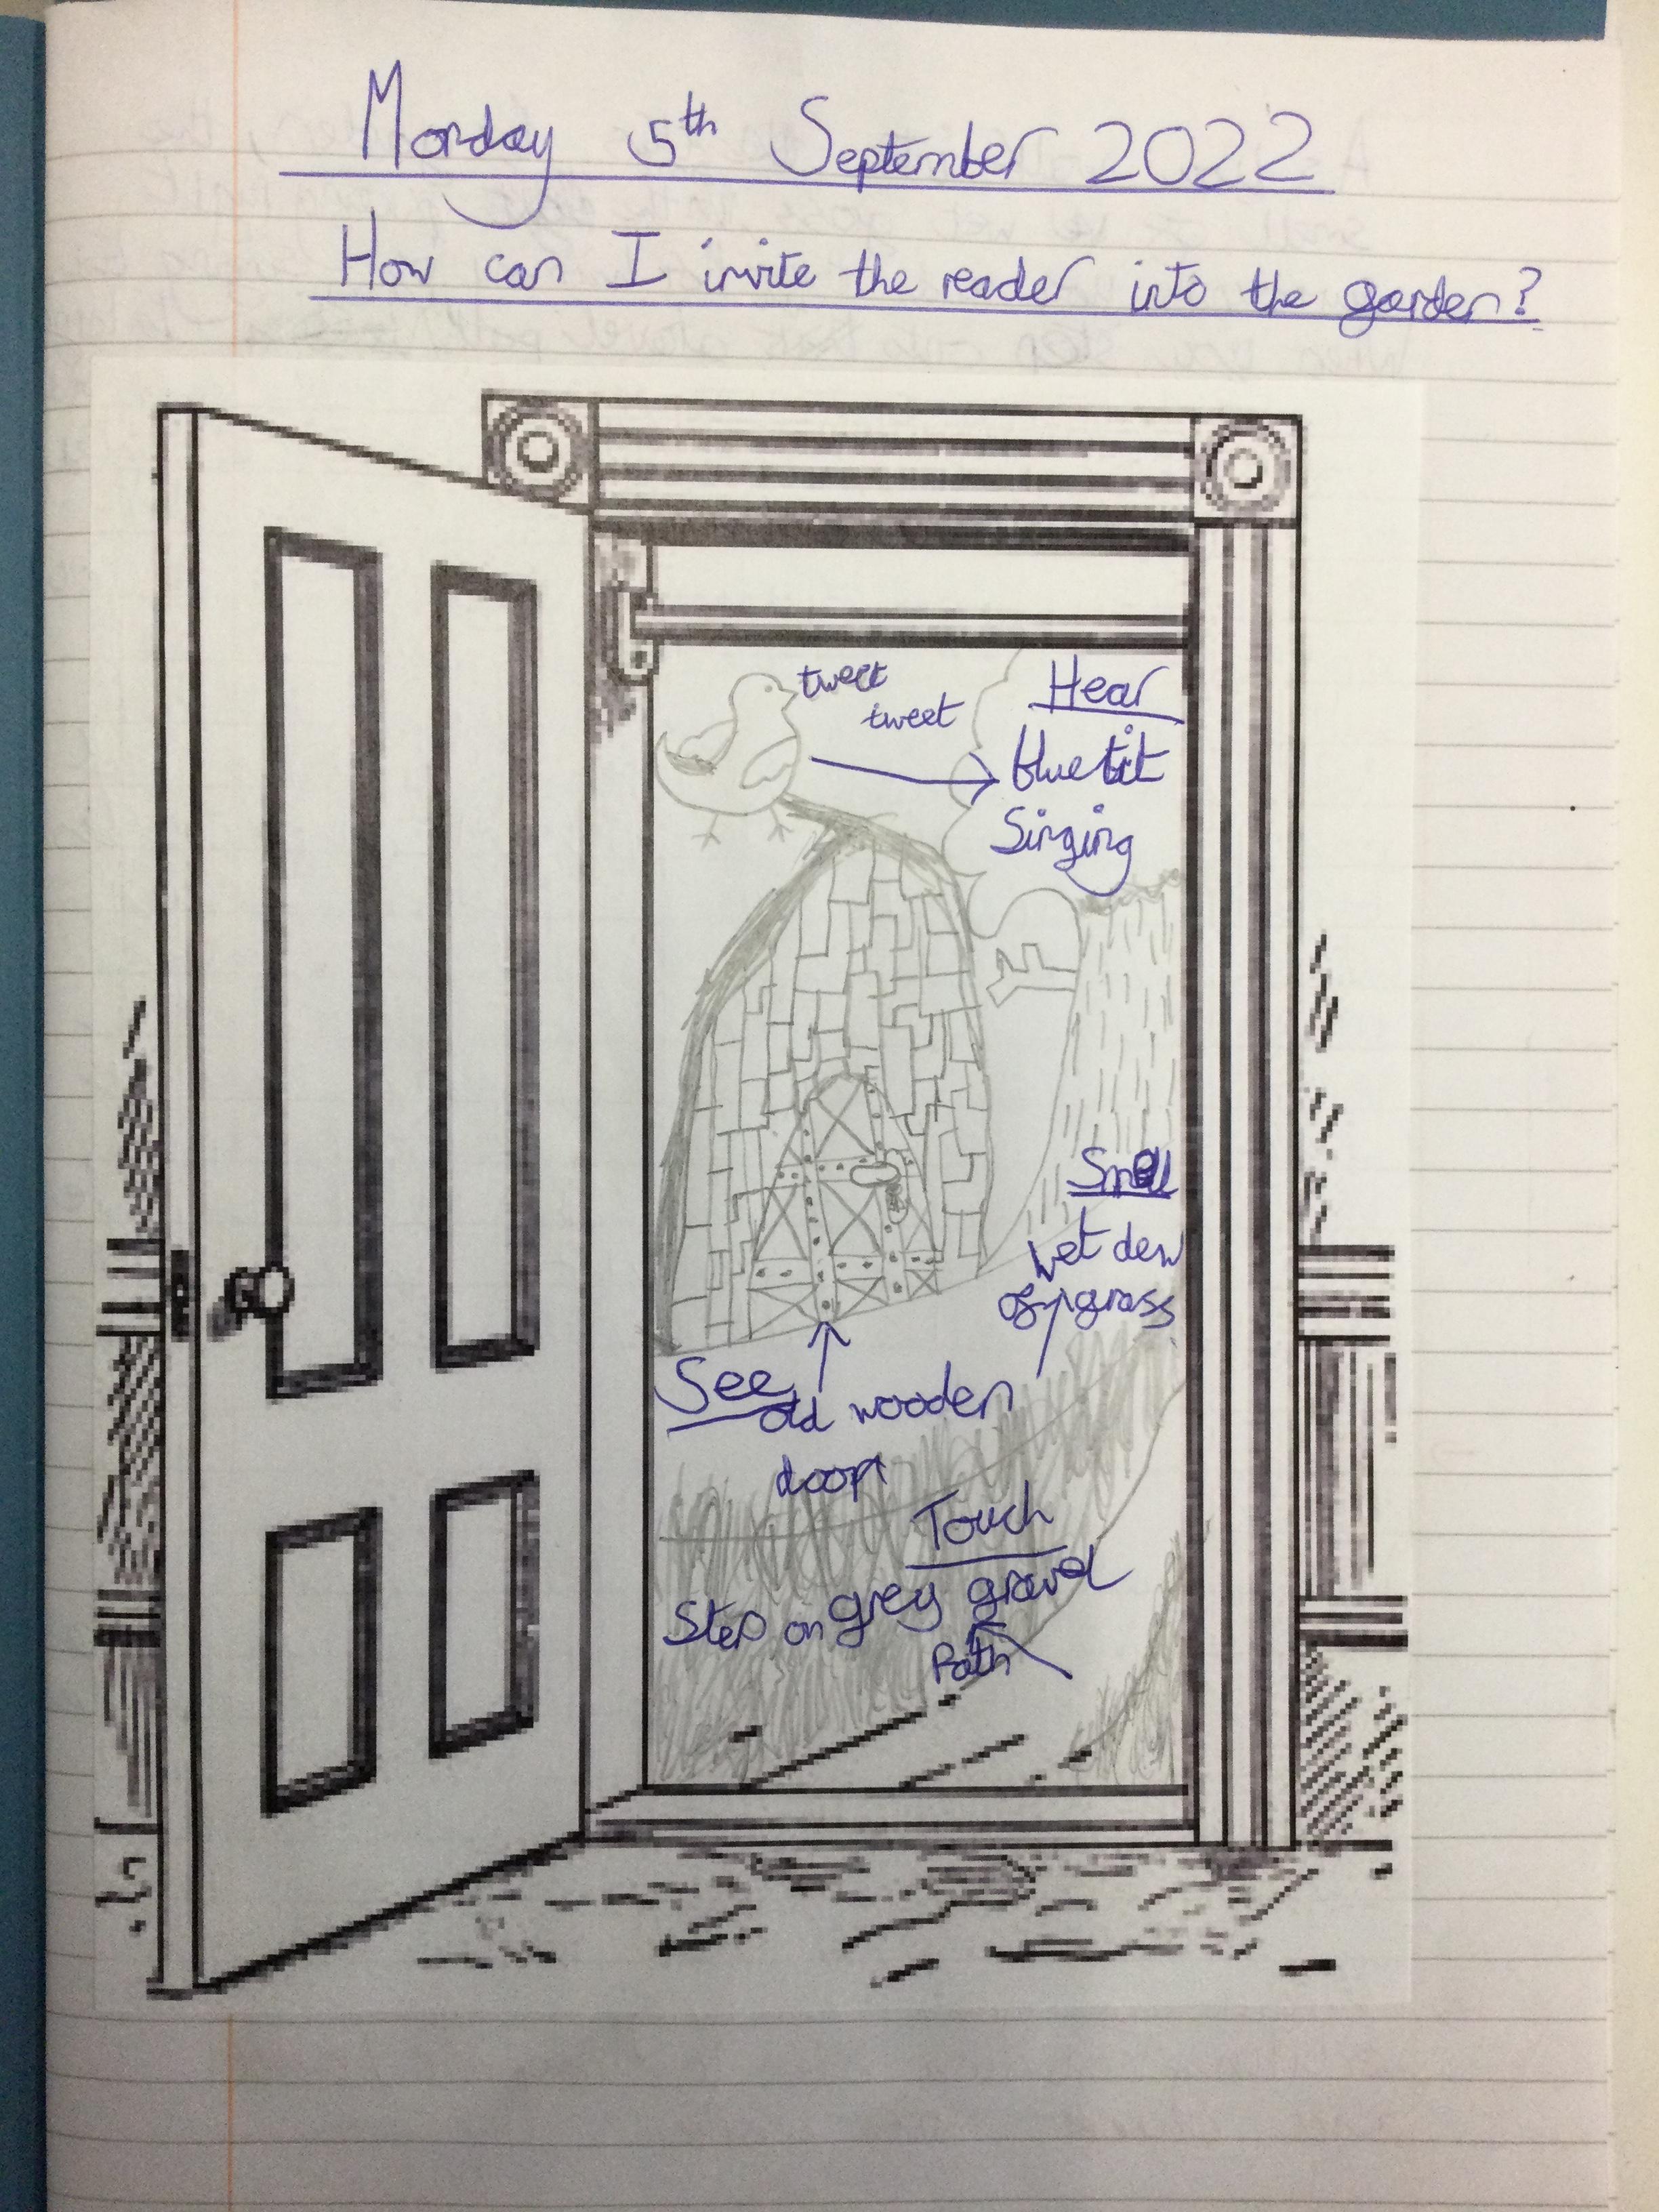 Monday 5th September 2022
How can I invite the reader into the garden?
tweet
tweet
Hear
bluetit
Singing
Smell
wet dew
of grass
See
old wooden
door
Touch
Step on grey gravel
Path